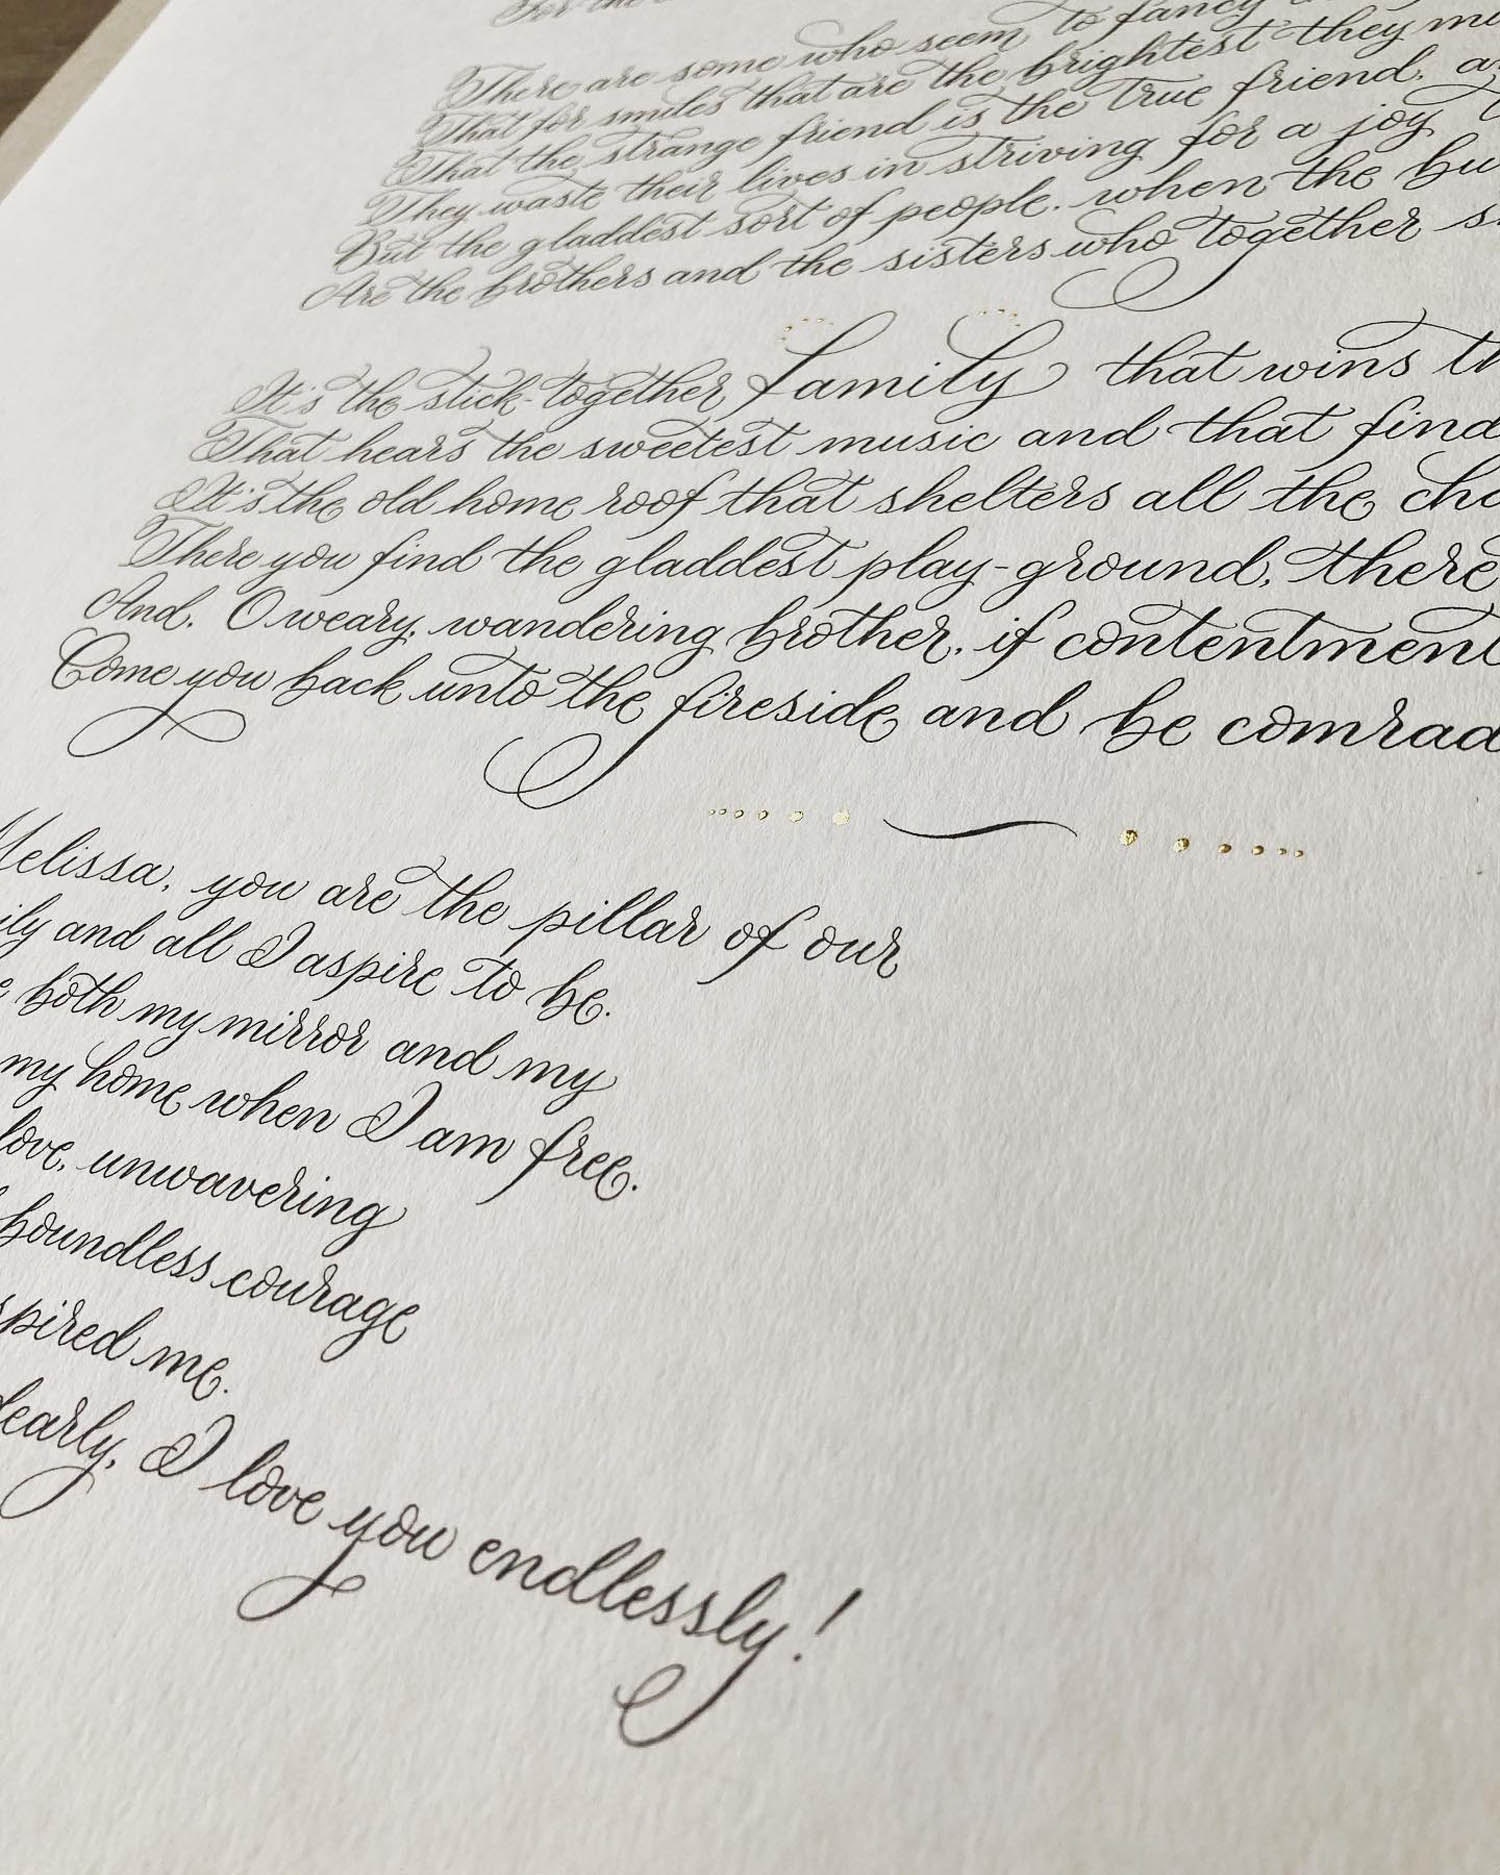 For the
There are some who seem to fancy
That for smiles that are the brightest they
That the strange friend is the true friend,
They waste their lives in striving for a joy
But the gladdest sort of people, when the
Are the brothers and the sisters who together
It's the stick-together family that wins
That hears the sweetest music and that
It's the old home roof that shelters all the
There you find the gladdest play-ground, there
And, O weary, wandering brother, if contentment
Come you back unto the fireside and be comrad
Melissa, you are the pillar of our
ily and all I aspire to be.
both my mirror and my
my home when I am free.
love, unwavering
boundless courage
spired me.
dearly, I love you endlessly!